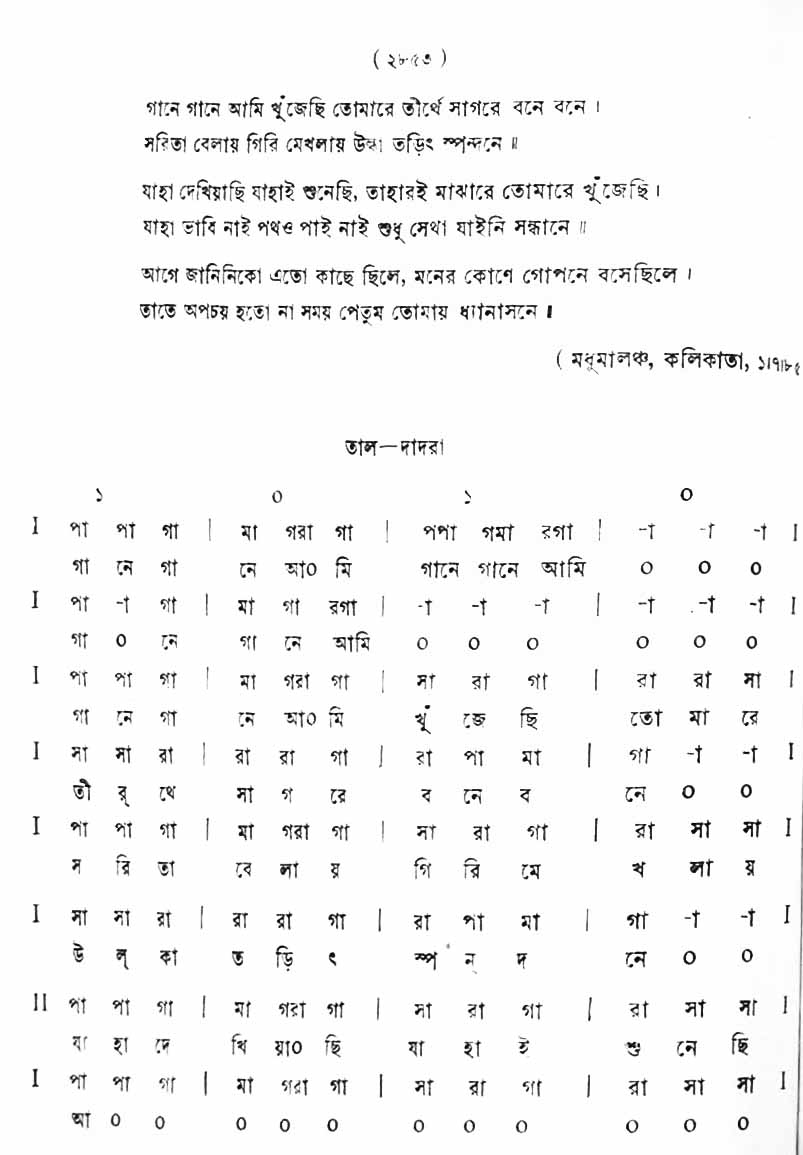 ( ২৮৫৩ )
গানে গানে আমি খুঁজেছি তোমারে তীর্থে সাগরে বনে বনে ।
সরিতা বেলায় গিরি মেখলায় উল্কা তড়িৎ স্পন্দনে ॥
যাহা দেখিয়াছি যাহাই শুনেছি, তাহারই মাঝারে তোমারে খুঁজেছি ।
যাহা ভাবি নাই পথও পাই নাই শুধু সেথা যাইনি সন্ধানে ॥
আগে জানিনিকো এতো কাছে ছিলে, মনের কোণে গোপনে বসেছিলে ।
তাতে অপচয় হতো না সময় পেতুম তোমায় ধ্যানাসনে ॥
( মধুমালঞ্চ, কলিকাতা, ১।৭।৮৫
তাল—দাদরা
১ ০ ১ ০
I পা পা গা | মা গরা গা | পপা গমা রগা | -া -া -া I
গা নে গা নে আ০ মি গানে গানে আমি ০ ০ ০
I পা -া গা | মা গা রগা | -া -া -া | -া -া -া I
গা ০ নে গা নে আমি ০ ০ ০ ০ ০ ০
I পা পা গা | মা গরা গা | সা রা গা | রা রা সা I
গা নে গা নে আ০ মি খুঁ জে ছি তো মা রে
I সা সা রা | রা রা গা | রা পা মা | গা -া -া I
তী র্ থে সা গ রে ব নে ব নে ০ ০
I পা পা গা | মা গরা গা | সা রা গা | রা সা সা I
স রি তা বে লা য় গি রি মে খ লা য়
I সা সা রা | রা রা গা | রা পা মা | গা -া -া I
উ ল্ কা ত ড়ি ৎ স্প ন্ দ নে ০ ০
II পা পা গা | মা গরা গা | সা রা গা | রা সা সা I
যা হা দে খি য়া০ ছি যা হা ই শু নে ছি
I পা পা গা | মা গরা গা | সা রা গা | রা সা সা I
আ ০ ০ ০ ০ ০ ০ ০ ০ ০ ০ ০